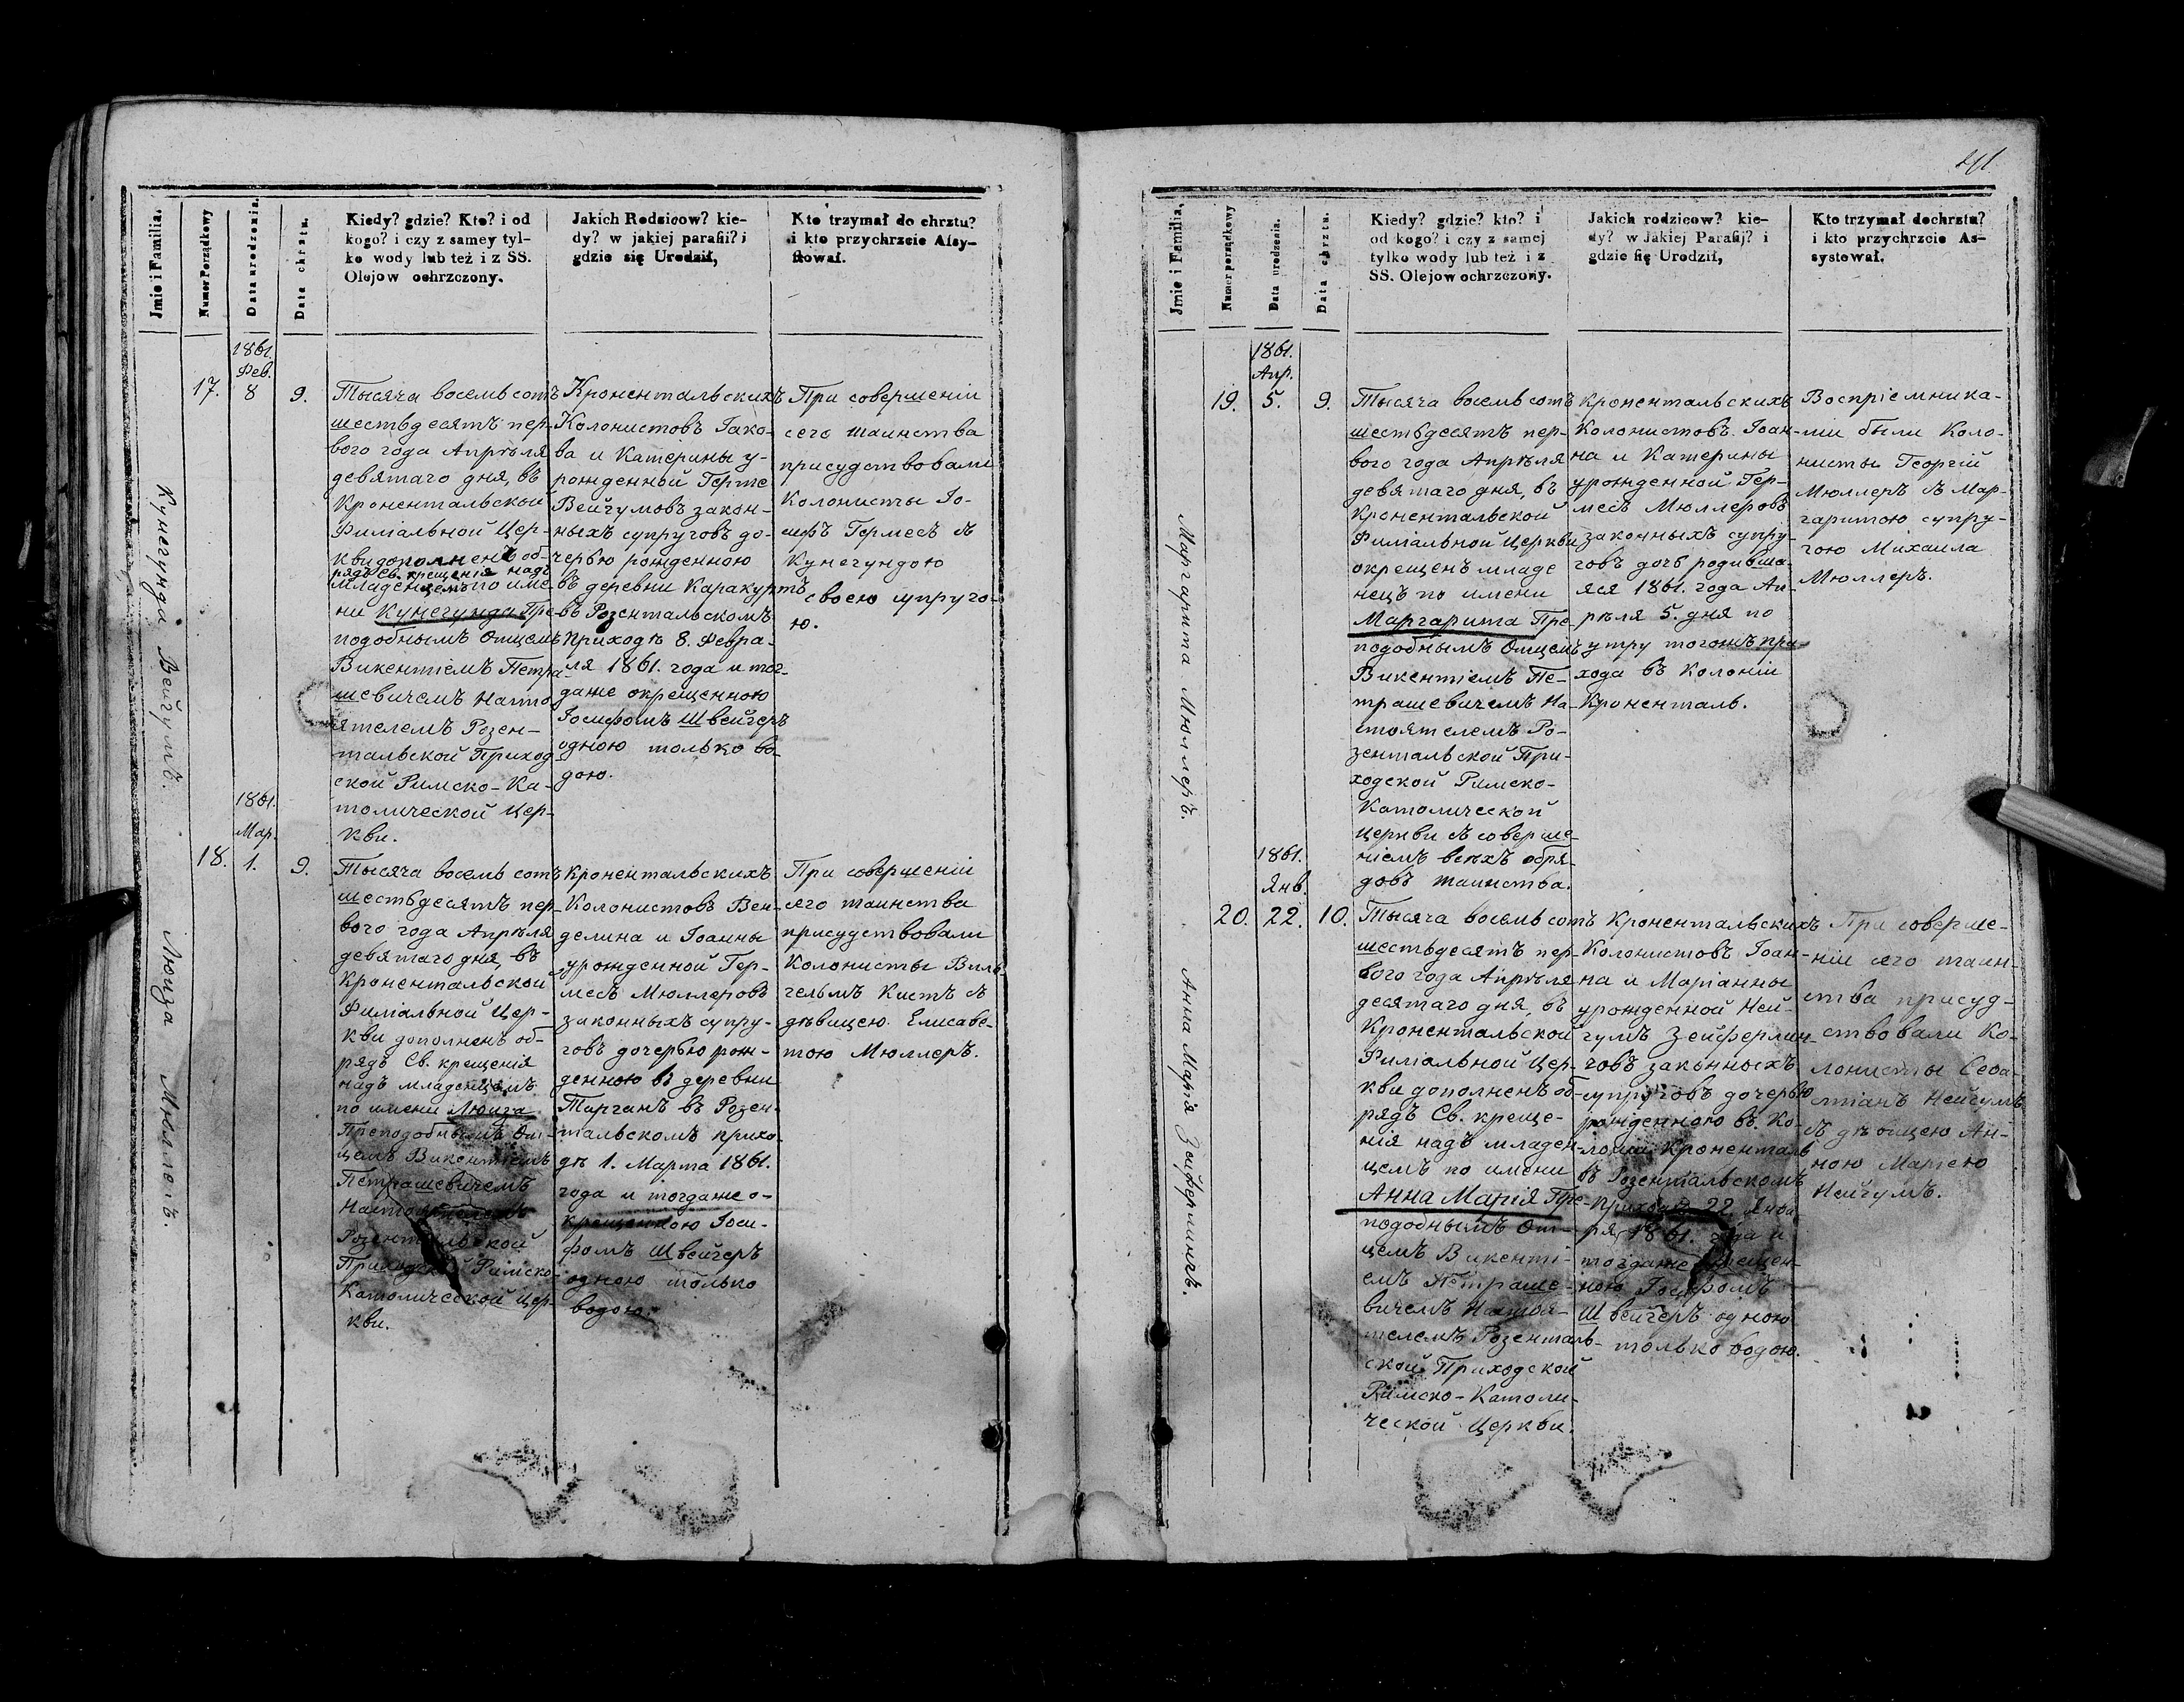 Jmie i Familia.
Numer Porządkowy
Data urodzenia.
Data chrztu.
Kiedy? gdzie? Kto? i od
kogo? i czy z samey tyl-
ko wody lub też i z SS.
Olejow ochrzczony.
Jakich Rodzicow? kie-
dy? w jakiej parafii? i
gdzie się Urodził,
Kto trzymał do chrztu?
i kto przychrzcie Assy-
stował.
Кунегунда Вейгумъ.
1861.
Фев.
17.
8
9.
Тысяча восемьсотъ
шестьдесятъ пер-
вого года Апрѣля
девятаго дня, въ
Кронентальской
Филіальной Цер-
кви дополненъ об-
рядъ Св. крещенія надъ
младенцемъ по име-
ни Кунегунда Пре-
подобнымъ Отцемъ
Викентіемъ Петра-
шевичемъ Насто-
ятелемъ Розен-
тальской Приход-
ской Римско-Ка-
толической Цер-
кви.
Кронентальскихъ
Колонистовъ Іако-
ва и Катерины у-
рожденной Герте
Вейгумовъ закон-
ныхъ супруговъ до-
черью рожденною
въ деревни Каракуртъ
въ Розентальскомъ
Приходѣ 8. Февра-
ля 1861. года и тог-
даже окрещенною
Іосифомъ Швейгеръ
одною только во-
дою.
При совершеніи
сего таинства
присудствовали
Колонисты Іо-
сифъ Гермесъ съ
Кунегундою
своею супруго-
ю.
Люиза Мюллеръ.
1861.
Мар.
18.
1.
9.
Тысяча восемьсотъ
шестьдесятъ пер-
вого года Апрѣля
девятаго дня, въ
Кронентальской
Филіальной Цер-
кви дополненъ об-
рядъ Св. крещенія
надъ младенцемъ
по имени Люиза
Преподобнымъ От-
цемъ Викентіемъ
Петрашевичемъ
Настоятелемъ
Розентальской
Приходской Римско-
Католической Цер-
кви.
Кронентальскихъ
Колонистовъ Вен-
делина и Іоанны
урожденной Гер-
месъ Мюллеровъ
законныхъ супру-
говъ дочерью рож-
денною въ деревни
Тарганъ въ Розен-
тальскомъ прихо-
дѣ 1. Марта 1861.
года и тогдаже о-
крещенною Іоси-
фомъ Швейгеръ
одною только
водою.
При совершеніи
сего таинства
присудствовали
Колонисты Виль-
гельмъ Кистъ съ
дѣвицею Елисаве-
тою Мюллеръ.
Jmie i Familia.
Numer porządkowy
Data urodzenia.
Data chrztu.
Kiedy? gdzie? kto? i
od kogo? i czy z samej
tylko wody lub też i z
SS. Olejow ochrzczony.
Jakich rodzicow? kie-
dy? w Jakiej Parafij? i
gdzie się Urodził,
Kto trzymał dochrztu?
i kto przychrzcie As-
systował.
Маргарита Мюллеръ.
1861.
Апр.
19.
5.
9.
Тысяча восемьсотъ
шестьдесятъ пер-
вого года Апрѣля
девятаго дня, въ
Кронентальской
Филіальной Церкви
окрещенъ младе
нецъ по имени
Маргарита Пре-
подобнымъ Отцемъ
Викентіемъ Пе-
трашевичемъ На-
стоятелемъ Ро-
зентальской При-
ходской Римско-
Католической
Церкви съ соверше-
ніемъ всѣхъ обря-
довъ таинства.
Кронентальскихъ
Колонистовъ Іоан-
на и Катерины
урожденной Гер-
месъ Мюллеровъ
законныхъ супру-
говъ дочь родивша-
яся 1861. года Ап-
рѣля 5. дня по
утру тогожъ при-
хода въ Колоніи
Кроненталь.
Воспріемника-
ми были Коло-
нисты Георгій
Мюллеръ съ Мар-
гаритою супру-
гою Михаила
Мюллеръ.
Анна Марія Зейферлингъ.
1861.
Янв.
20.
22.
10.
Тысяча восемьсотъ
шестьдесятъ пер-
вого года Апрѣля
десятаго дня, въ
Кронентальской
Филіальной Цер-
кви дополненъ об-
рядъ Св. креще-
нія надъ младен-
цемъ по имени
Анна Марія Пре-
подобнымъ От-
цемъ Викенті-
емъ Петраше-
вичемъ Настоя-
телемъ Розенталь-
ской Приходской
Римско-Католи-
ческой Церкви.
Кронентальскихъ
Колонистовъ Іоан-
на и Маріанны
урожденной Ней-
гумъ Зейферлин-
говъ законныхъ
супруговъ дочерью
рожденною въ Ко-
лоніи Кроненталь
въ Розентальскомъ
приходѣ 22. Янва
ря 1861. года и
тогдаже окрещен-
ною Іосифомъ
Швейгеръ одною
только водою.
При соверше-
ніи сего таин-
ства присуд-
ствовали Ко-
лонисты Сева-
стіанъ Нейгумъ
съ дѣвицею Ан-
ною Маріею
Нейгумъ.